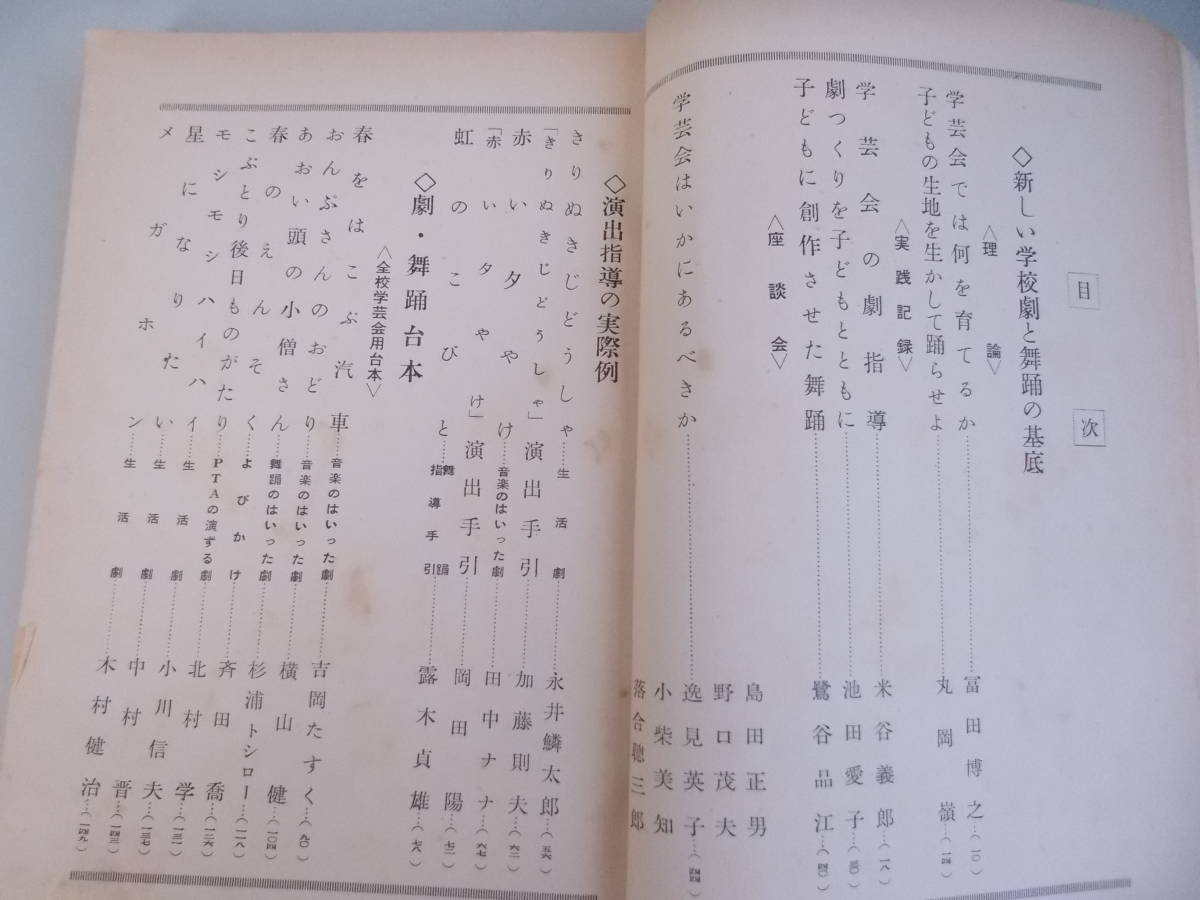 目次
◇新しい学校劇と舞踊の基底
〈理論〉
学芸会では何を育てるか……冨田博之…(一〇)
子どもの生地を生かして踊らせよ……丸岡嶺…(一四)
〈実践記録〉
学芸会の劇指導……米谷義郎…(一八)
劇つくりを子どもとともに……池田愛子…(三〇)
子どもに創作させた舞踊……鷺谷品江…(四〇)
〈座談会〉
学芸会はいかにあるべきか……
島田正男
野口茂夫
逸見英子…(四四)
小柴美知
落合聰三郎
◇演出指導の実際例
きりぬきじどうしゃ……生活劇……永井鱗太郎…(五六)
「きりぬきじどうしゃ」演出手引……加藤則夫…(六二)
赤い夕やけ……音楽のはいった劇……田中ナナ…(六七)
「赤い夕やけ」演出手引……岡田陽…(七二)
虹のこびと……舞踊指導手引……露木貞雄…(七八)
◇劇・舞踊台本
〈全校学芸会用台本〉
春をはこぶ汽車……音楽のはいった劇……吉岡たすく…(九〇)
おんぶさんのおどり……音楽のはいった劇……横山健…(一〇四)
あおい頭の小僧さん……舞踊のはいった劇……杉浦トシロー…(一一八)
春のえんそく……よびかけ……斉田喬…(一二六)
こぶとり後日ものがたり……PTAの演ずる劇……北村学…(一三一)
モシモシハイハイ……生活劇……小川信夫…(一三七)
星になりたい……生活劇……中村晋…(一四三)
メガホン……生活劇……木村健治…(一四九)